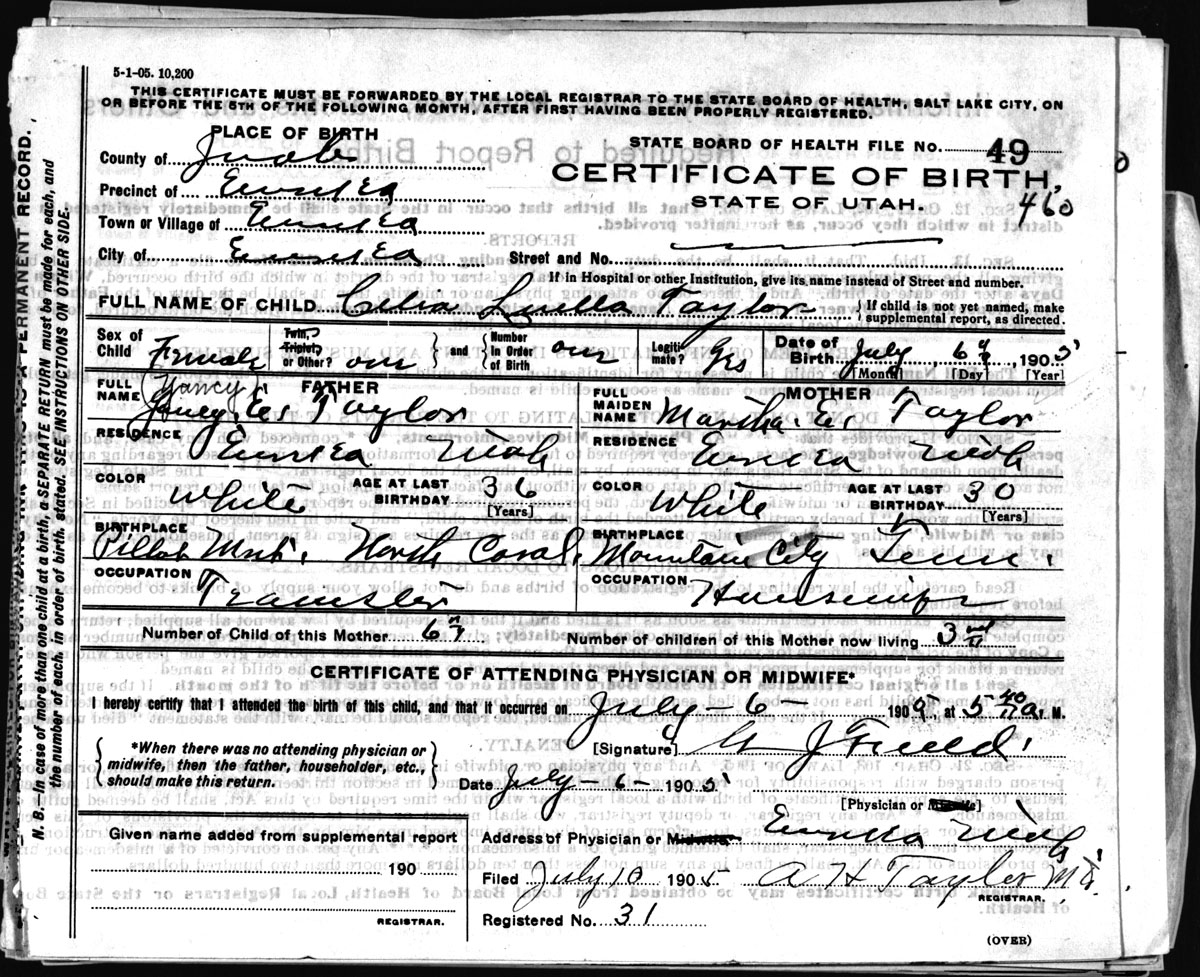 5-1-05. 10,200
THIS CERTIFICATE MUST BE FORWARDED BY THE LOCAL REGISTRAR TO THE STATE BOARD OF HEALTH, SALT LAKE CITY, ON
OR BEFORE THE 5TH OF THE FOLLOWING MONTH, AFTER FIRST HAVING BEEN PROPERLY REGISTERED.
PLACE OF BIRTH
STATE BOARD OF HEALTH FILE NO. 49
County of Juab
CERTIFICATE OF BIRTH,
460
Precinct of Eureka
STATE OF UTAH.
Town or Village of Eureka
City of Eureka Street and No.
If in Hospital or other Institution, give its name instead of Street and number.
FULL NAME OF CHILD Celia Luella Taylor { If child is not yet named, make supplemental report, as directed.
Sex of Child Female Twin, Triplet, or Other? one } and { Number in Order of Birth one Legitimate? Yes Date of Birth July 6th, 1905
[Month] [Day] [Year]
FATHER
FULL NAME (Yancy) E. Taylor
RESIDENCE Eureka Utah
COLOR White AGE AT LAST BIRTHDAY 36 [Years]
BIRTHPLACE Pillot Mnt. North Caral.
OCCUPATION Teamster
MOTHER
FULL MAIDEN NAME Martha. E. Taylor
RESIDENCE Eureka Utah
COLOR White AGE AT LAST BIRTHDAY 30 [Years]
BIRTHPLACE Mountain City Tenn.
OCCUPATION Housewife
Number of Child of this Mother 6th Number of children of this Mother now living 3
CERTIFICATE OF ATTENDING PHYSICIAN OR MIDWIFE*
I hereby certify that I attended the birth of this child, and that it occurred on July - 6 - 1905, at 5 40 a. M.
{ *When there was no attending physician or midwife, then the father, householder, etc., should make this return. }
[Signature]
Date July - 6 - 1905
[Physician or Midwife]
Given name added from supplemental report
190
REGISTRAR.
Address of Physician or Midwife Eureka Utah
Filed July 10 1905 A H Taylor M D.
REGISTRAR.
Registered No. 31
(OVER)
N. B.—In case of more than one child at a birth, a SEPARATE RETURN must be made for each, and
the number of each, in order of birth, stated. SEE INSTRUCTIONS ON OTHER SIDE.
PERMANENT RECORD.